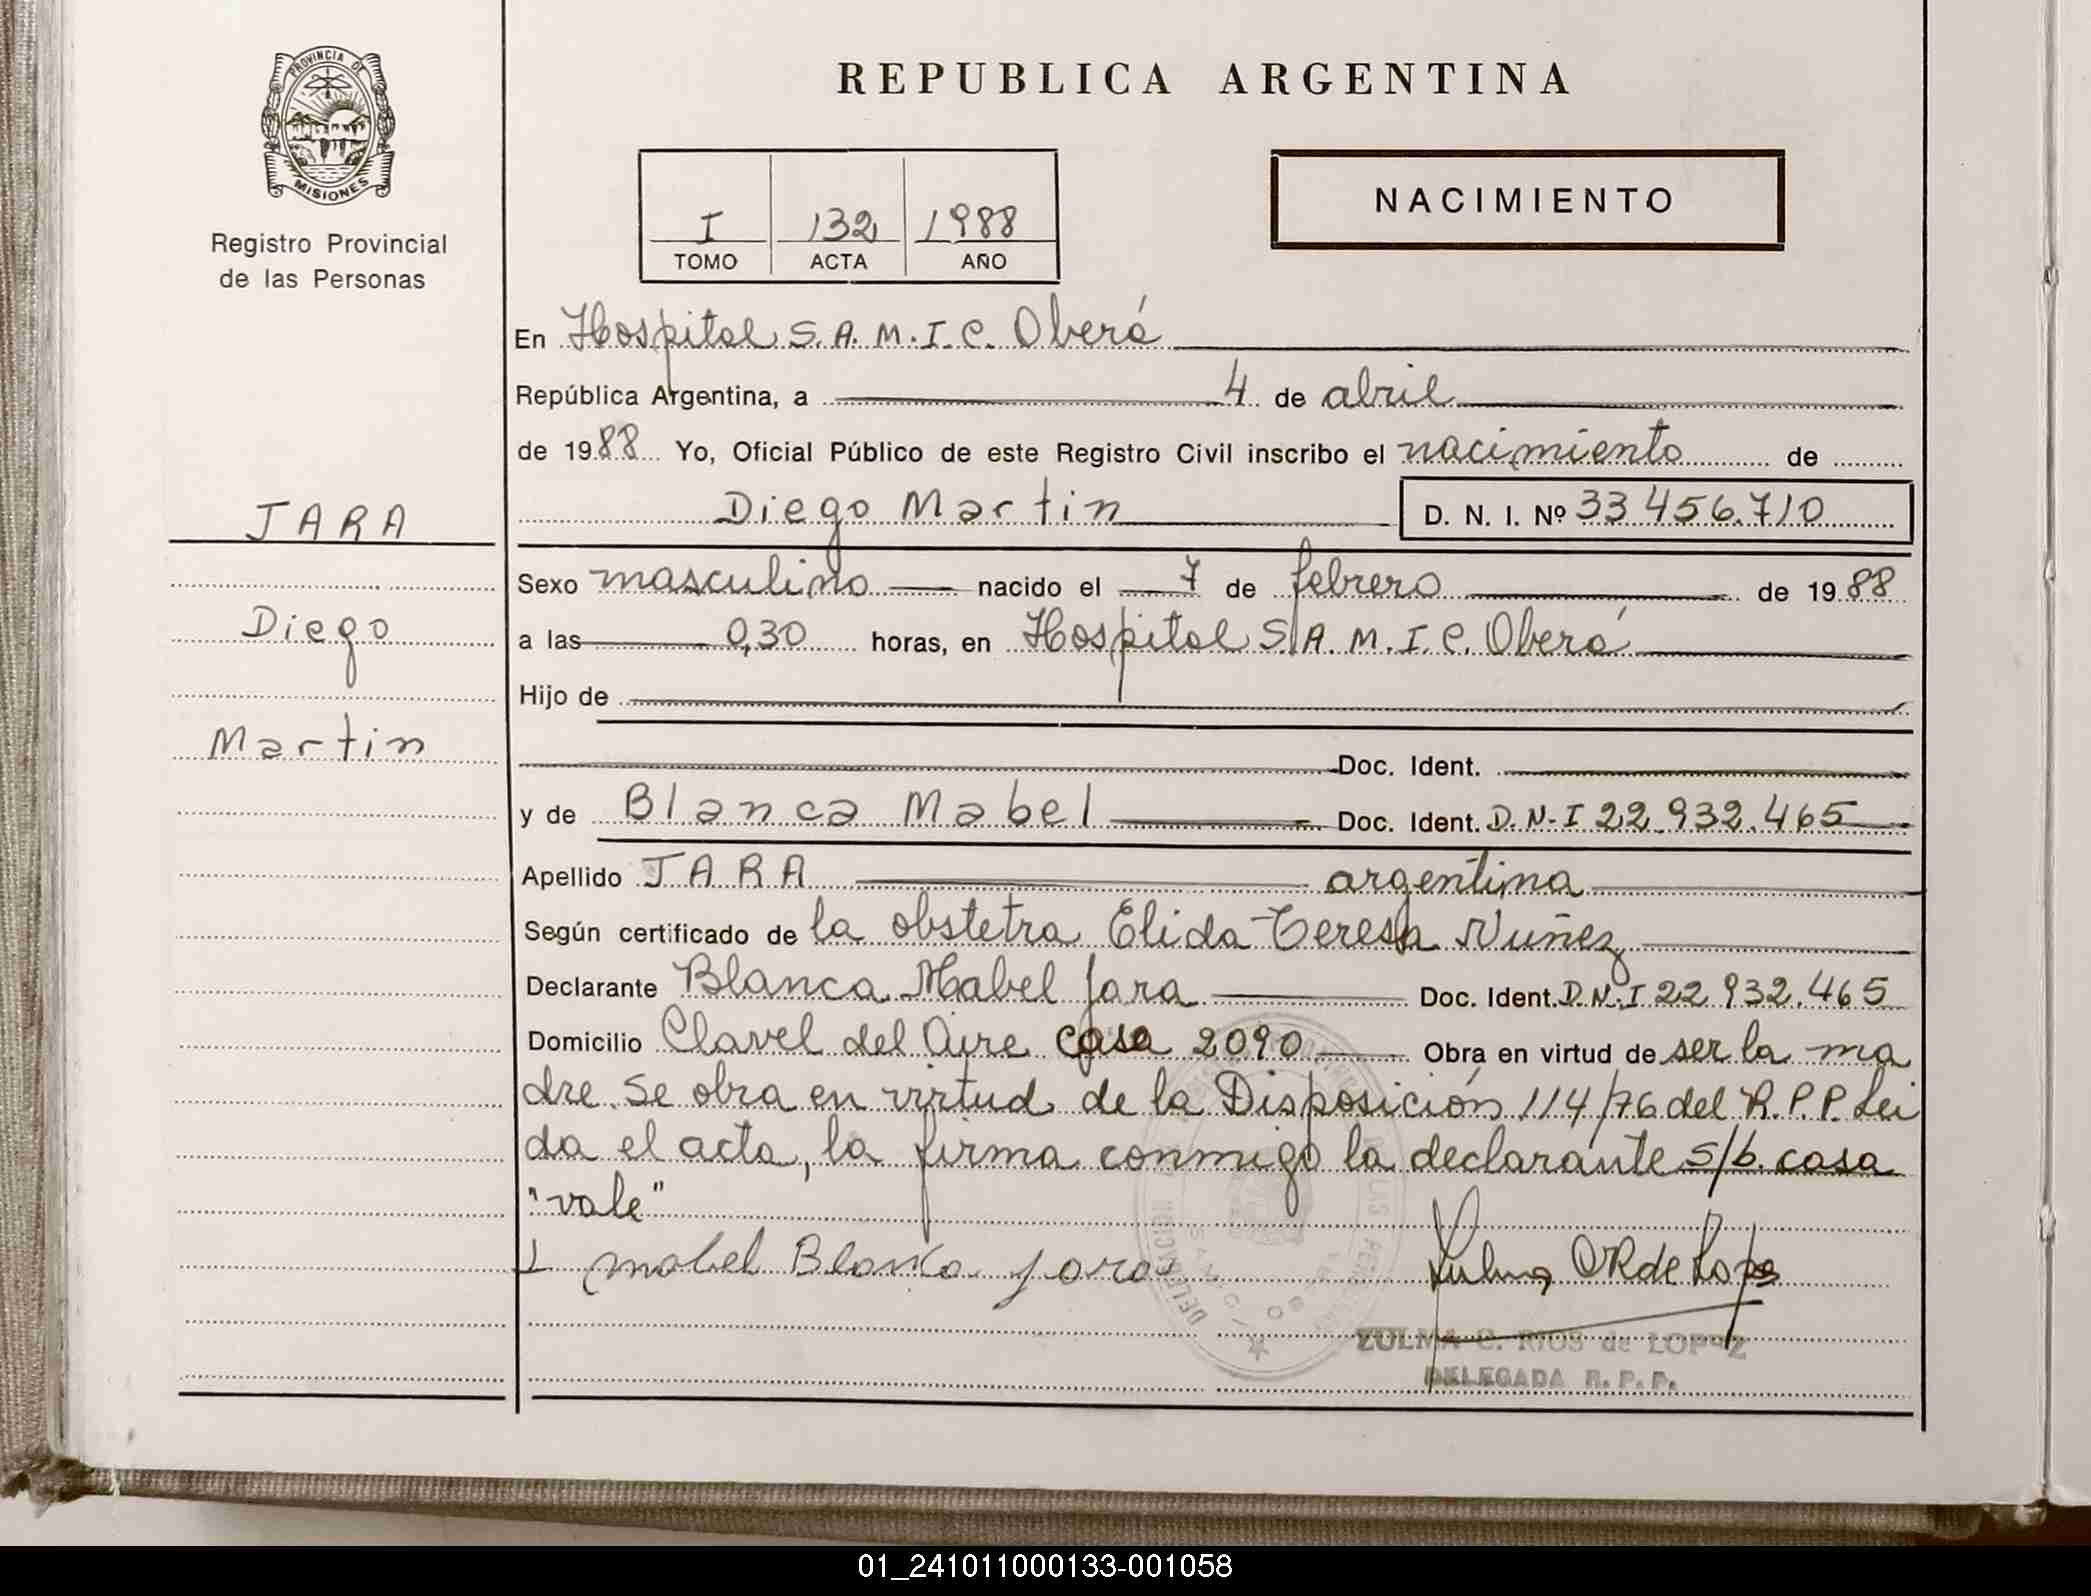 PROVINCIA DE
MISIONES
Registro Provincial
de las Personas
JARA
Diego
Martin
REPUBLICA ARGENTINA
I 132 1988
TOMO ACTA AÑO
NACIMIENTO
En Hospital S.A.M.I.C. Oberá
República Argentina, a 4 de abril
de 1988 Yo, Oficial Público de este Registro Civil inscribo el nacimiento de
Diego Martin D. N. I. Nº 33 456.710
Sexo masculino nacido el 7 de febrero de 1988
a las 0,30 horas, en Hospital S.A.M.I.C. Oberá
Hijo de
Doc. Ident.
y de Blanca Mabel Doc. Ident. D.N.I 22.932.465
Apellido JARA argentina
Según certificado de la obstetra Elida Teresa Nuñez
Declarante Blanca Mabel Jara Doc. Ident. D.N.I 22 932.465
Domicilio Clavel del Aire casa 2090 Obra en virtud de ser la ma
dre. Se obra en virtud de la Disposición 114/76 del R.P.P. Lei
da el acta, la firma conmigo la declarante s/b. casa
"vale"
Mabel Blanca Jara
Zulma C R de Lopez
ZULMA C. RIOS de LOPEZ
DELEGADA R. P. P.
01_241011000133-001058